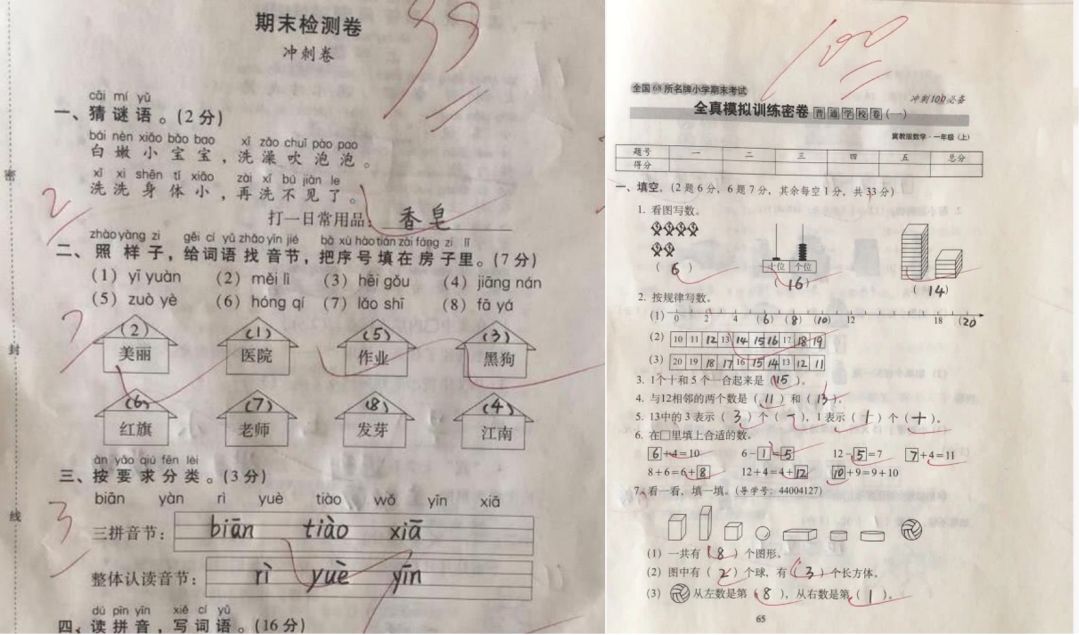 期末检测卷
99
冲刺卷
cāi mí yǔ
一、猜谜语。(2分)
bái nèn xiǎo bǎo bao xǐ zǎo chuī pào pao
白嫩小宝宝,洗澡吹泡泡。
xǐ xi shēn tǐ xiǎo zài xǐ bú jiàn le
洗洗身体小,再洗不见了。
2
打一日常用品: 香皂
zhào yàng zi gěi cí yǔ zhǎo yīn jié bǎ xù hào tián zài fáng zi lǐ
二、照样子,给词语找音节,把序号填在房子里。(7分)
(1) yī yuàn (2) měi lì (3) hēi gǒu (4) jiāng nán
(5) zuò yè (6) hóng qí (7) lǎo shī (8) fā yá
7
(2) (1) (5) (3)
美丽 医院 作业 黑狗
(6) (7) (8) (4)
红旗 老师 发芽 江南
àn yāo qiú fēn lèi
三、按要求分类。(3分)
biān yàn rì yuè tiào wǒ yīn xiā
3
三拼音节: biān tiào xiā
整体认读音节: rì yuè yīn
dú pīn yīn xiě cí yǔ
四、读拼音,写词语。(16分)
密
封
线
100
全国68所名牌小学期末考试
冲刺100必备
全真模拟训练密卷 普通学校卷(一)
冀教版数学·一年级(上)
题号 一 二 三 四 五 总分
得分
一、填空。(2题6分,6题7分,其余每空1分,共33分)
1. 看图写数。
十位 个位
(6) (16) (14)
2. 按规律写数。
(1) 0 2 4 (6) (8) (10) 12 18 (20)
(2) 10 11 12 13 14 15 16 17 18 19
(3) 20 19 18 17 16 15 14 13 12 11
3. 1个十和5个一合起来是(15)。
4. 与12相邻的两个数是(11)和(13)。
5. 13中的3表示(3)个(一),1表示(1)个(十)。
6. 在□里填上合适的数。
6+4=10 6-1=5 12-5=7 7+4=11
8+6=6+8 12+4=4+12 10+9=9+10
7. 看一看,填一填。(导学号:44004127)
(1) 一共有(8)个图形。
(2) 图中有(2)个球,有(3)个长方体。
(3) 从左数是第(8),从右数是第(1)。
65